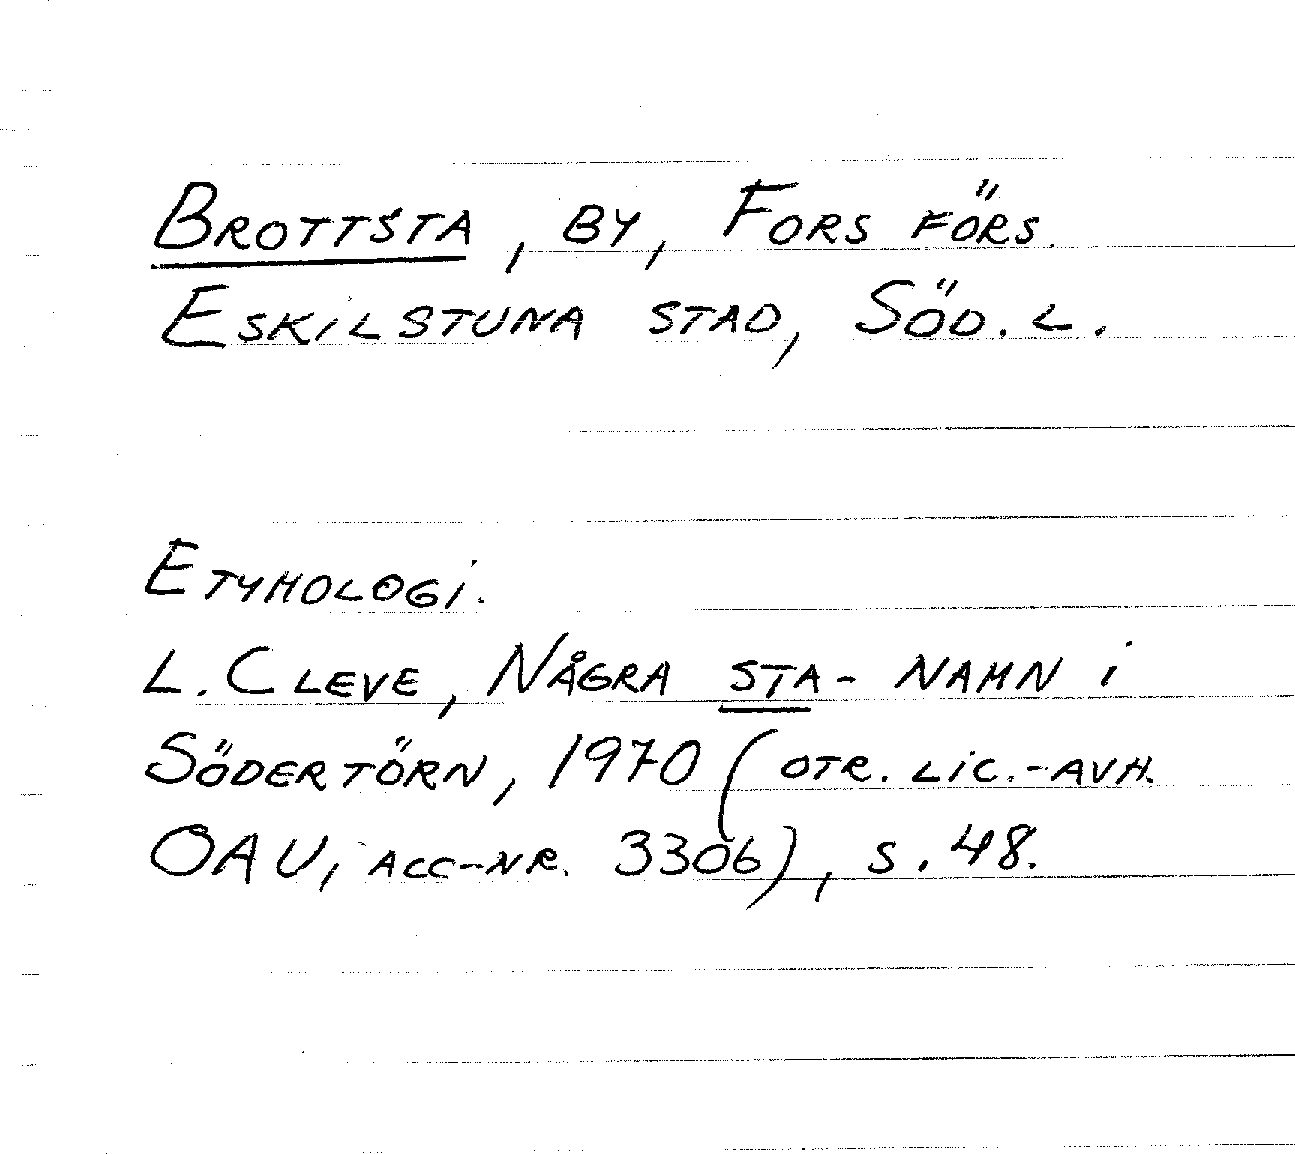 Brottsta, by, Fors förs.
Eskilstuna stad, Söd. l.
Etymologi.
L. Cleve, Några sta-namn i
Södertörn, 1970 (otr. lic.-avh.
OAU, acc-nr. 3306), s. 48.